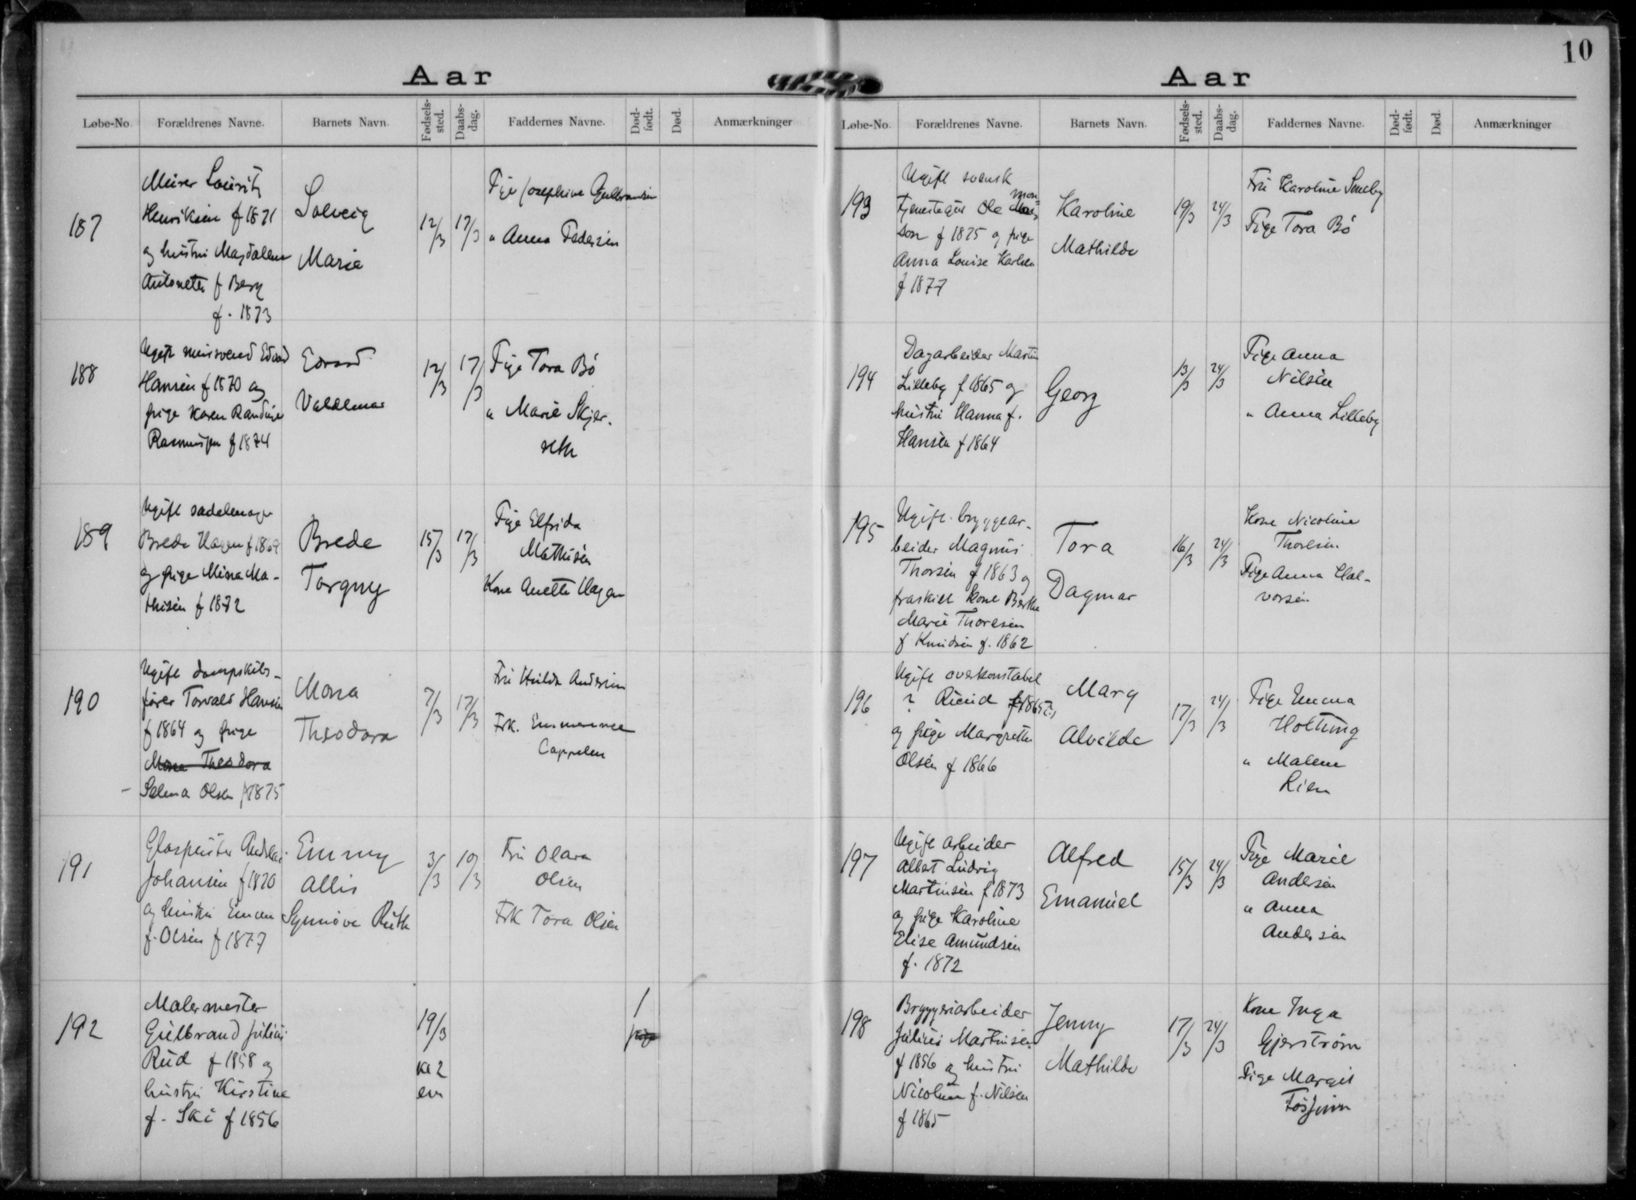 Aar
Løbe-No. Forældrenes Navne. Barnets Navn. Fødsels-sted. Daabs-dag. Faddernes Navne. Død-født. Død. Anmærkninger
187
Murer Lauritz
Henriksen f 1871
og hustru Magdalene
Antonette f Berg
f. 1873
Solveig
Marie
12/3
17/3
Pige Josephine Gulbrandsen
" Anna Pedersen
188
Ugift mursvend Edvard
Hansen f 1870 og
pige Karen Randine
Rasmussen f 1874
Edvard
Valdemar
12/3
17/3
Pige Tora Bö
" Marie Skjer-
189
Ugift sadelmager
Brede Hagen f 1869
og pige Mina Ma-
thisen f 1872
Brede
Torgny
15/3
17/3
Pige Elfrida
Mathisen
Kone Anette Hagen
190
Ugift dampskibs-
fører Torvald Hansen
f 1864 og pige
Mona Theodora
Selma Olsen f 1875
Mona
Theodora
7/3
17/3
Fru Hulda Andersen
Frk. Emmerence
Cappelen
191
Glaspuster Andreas
Johansen f 1870
og hustru Emma
f. Olsen f 1877
Emmy
Allis
Synnöve Ruth
3/3
10/3
Fru Olara
Olsen
Frk Tora Olsen
192
Malermester
Gulbrand Julius
Rud f 1858 og
hustru Kirstine
f. Ski f 1856
19/3
kl 2
em
1
pige
10
Aar
Løbe-No. Forældrenes Navne. Barnets Navn. Fødsels-sted. Daabs-dag. Faddernes Navne. Død-født. Død. Anmærkninger
193
Ugift svensk
tjenestegut Ole Mon-
son f 1875 og pige
Anna Louise Karlsen
f 1877
Karoline
Mathilde
19/3
24/3
Fru Karoline Smeby
Pige Tora Bö
194
Dagarbeider Martin
Lilleby f 1865 og
hustru Hanna f.
Hansen f 1864
Georg
13/3
24/3
Pige Anna
Nilsen
" Anna Lilleby
195
Ugift bryggear-
beider Magnus
Thorsen f 1863 og
fraskilt kone Berthe
Marie Thoresen
f Knudsen f. 1862
Tora
Dagmar
16/3
24/3
Kone Nicoline
Thoresen
Pige Anna Hal-
vorsen
196
Ugift overkonstabel
? Ruud f 1865?
og pige Margrethe
Olsen f 1866
Mary
Alvilde
17/3
24/3
Pige Emma
Holtung
" Malene
Lien
197
Ugift arbeider
Albert Ludvig
Martinsen f 1873
og pige Karoline
Elise Amundsen
f. 1872
Alfred
Emanuel
15/3
24/3
Pige Marie
Andersen
" Anna
Andersen
198
Bryggeriarbeider
Julius Martinsen
f 1856 og hustru
Nicoline f. Nilsen
f 1865
Jenny
Mathilde
17/3
24/3
Kone Inga
Gjerström
Pige Margit